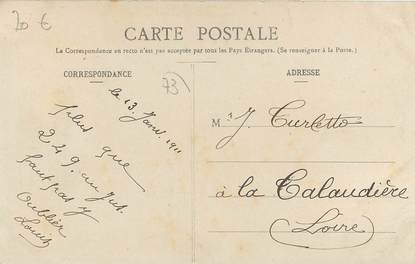 20 €
CARTE POSTALE
La Correspondance en recto n'est pas acceptée par tous les Pays Etrangers. (Se renseigner à la Poste.)
CORRESPONDANCE
73
le 13 Janv. 1911
Plus que
249 au Jus.
faut pas y
Oublier
Louis
ADRESSE
Mr J. Turletto
à la Talaudière
(Loire)